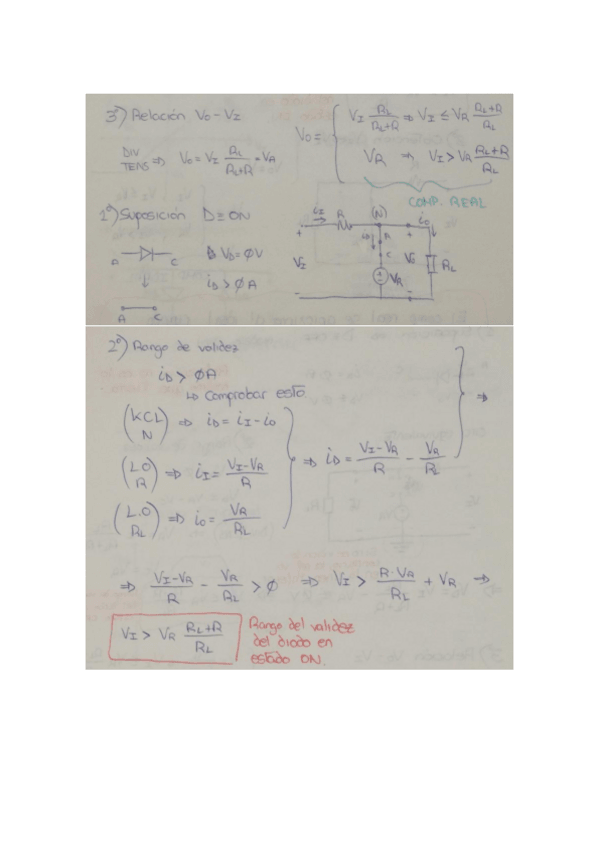 3º) Relación Vo - VI
Vo = { VI RL/(RL+R) ⇒ VI ≤ VR (RL+R)/RL
VR ⇒ VI > VR (RL+R)/RL
DIV TENS ⇒ Vo = VI RL/(RL+R)
COMP. REAL
1º) Suposición D ≡ ON
A C
VD = ØV
iD > ØA
A C
iI R (N) io
+ iD A +
VI C Vo RL
VR
- -
2º) Rango de validez
iD > ØA
↳ Comprobar esto
(KCL N) ⇒ iD = iI - io
(L.O R) ⇒ iI = (VI-VR)/R
⇒ iD = (VI-VR)/R - VR/RL ⇒
(L.O RL) ⇒ io = VR/RL
⇒ (VI-VR)/R - VR/RL > Ø ⇒ VI > (R·VR)/RL + VR ⇒
VI > VR (RL+R)/RL
Rango del validez
del diodo en
estado ON.